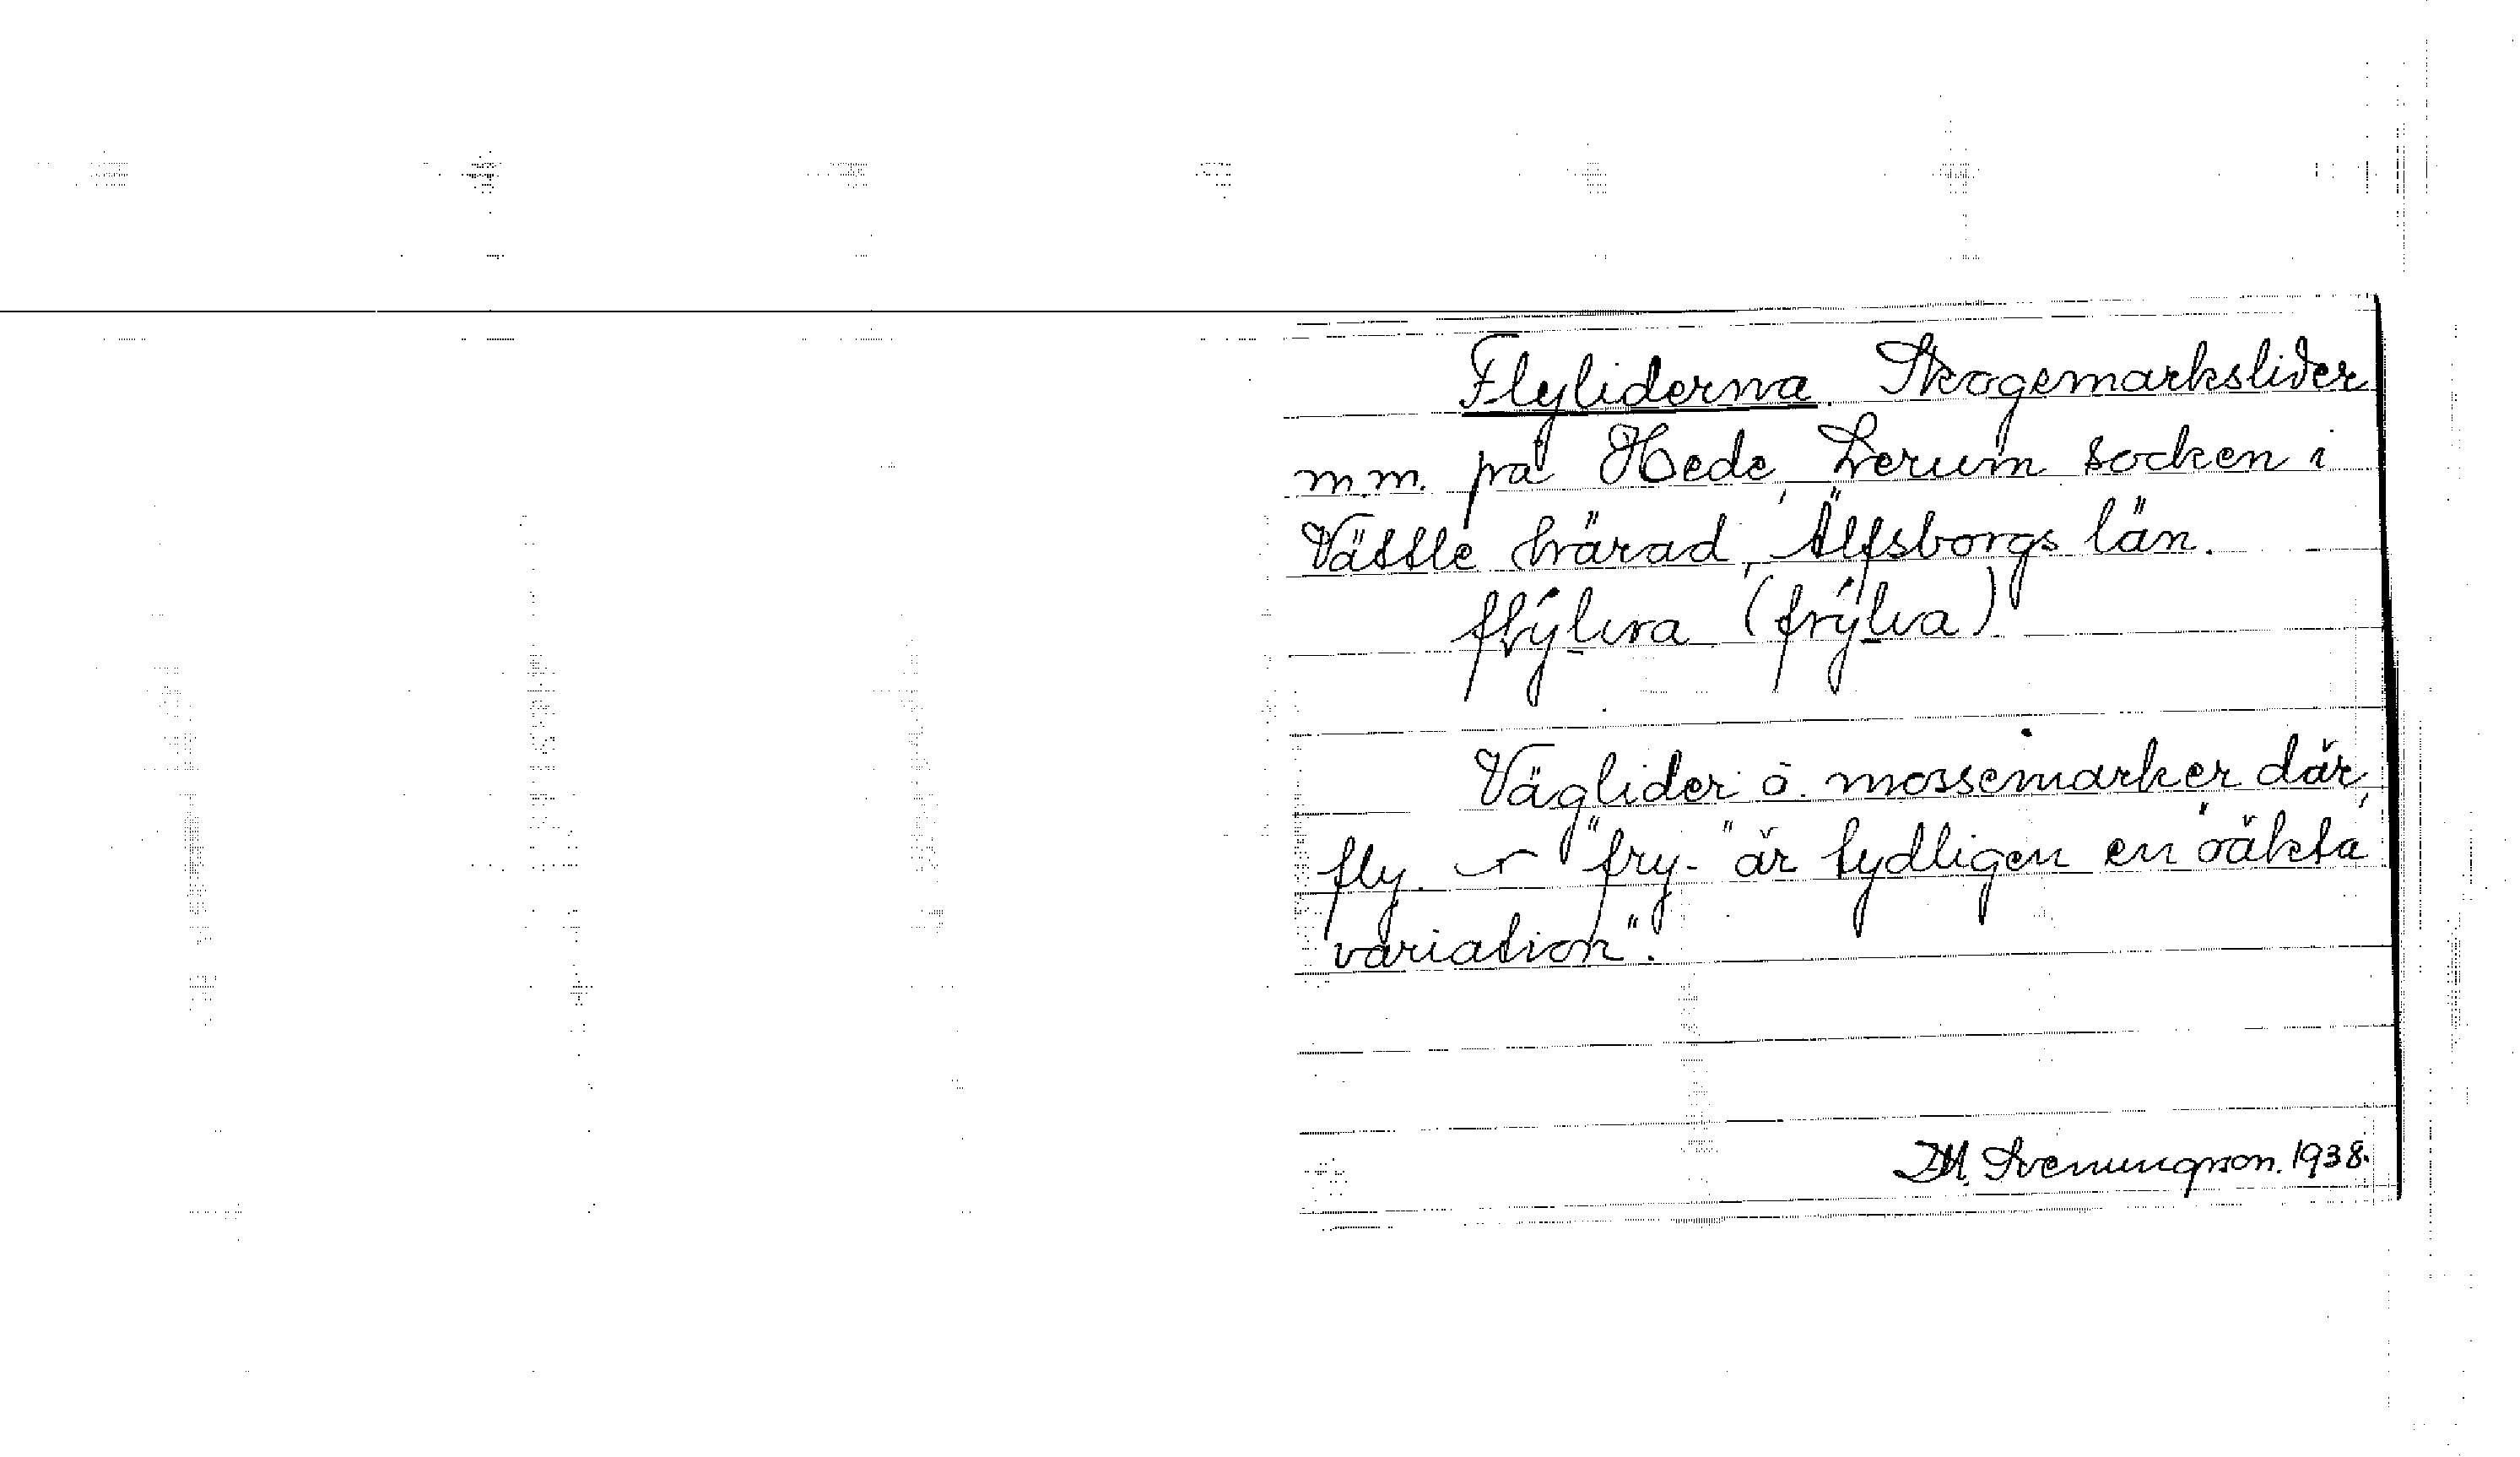 Flyliderna. Skogemarkslider
m.m. på Hede, Lerum socken i
Vättle härad, Älfsborgs län.
flýlira (frýlia)
Väglider o. mossemarker där,
fly. "fry-" är tydligen en "oäkta
variation".
D.M. Svenungson. 1938.